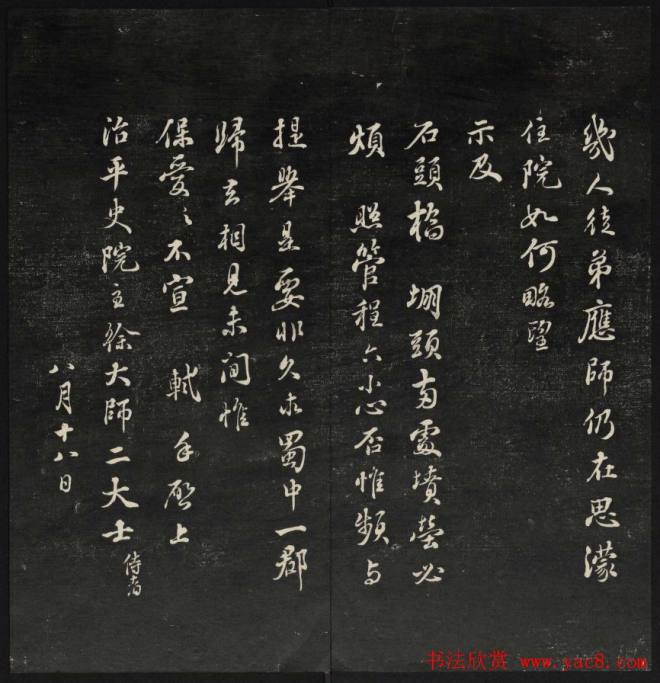 幾人徒弟應師仍在思濛
住院如何略望
示及
石頭橋 堋頭兩處墳塋必
煩 照管程六小心否惟頻与
提舉是要非久求蜀中一郡
歸去相見未間惟
保愛〻不宣 軾手啓上
治平史院主徐大師二大士侍者
八月十八日
书法欣赏 www.yac8.com